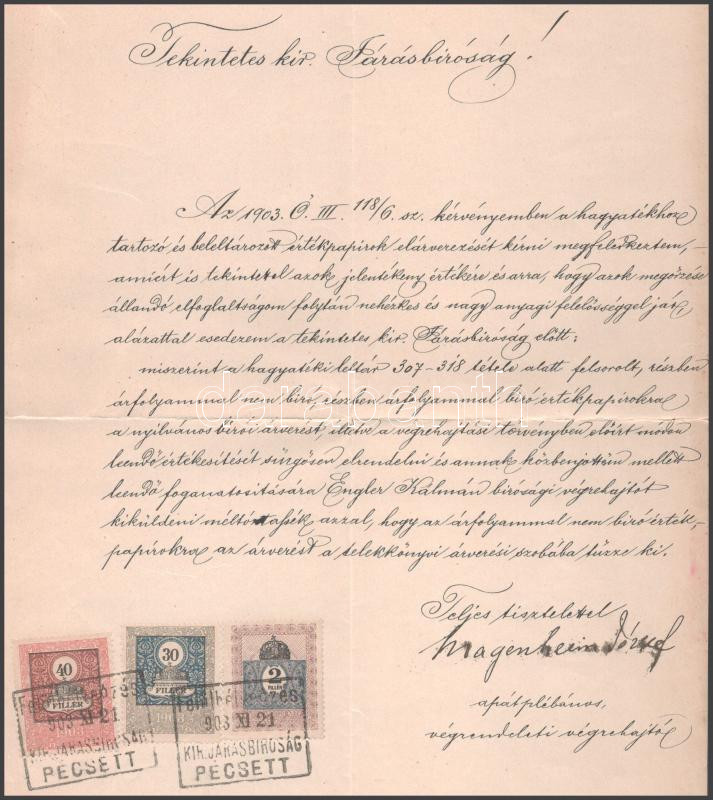 Tekintetes kir. Járásbiróság!
Az 1903. Ö. III. 118/6. sz. kérvényemben a hagyatékhoz
tartozó és beleltározott értékpapirok elárverezését kérni megfeledkeztem,
amiért is tekintettel azok jelentékeny értékére és arra, hogy azok megőrzése
állandó elfoglaltságom folytán nehézkes és nagy anyagi felelősséggel jár,
alázattal esedezem a tekintetes kir. Járásbiróság előtt:
miszerint a hagyatéki leltár 307-318 tétele alatt felsorolt, részben
árfolyammal nem biró, részben árfolyammal biró értékpapirokra
a nyilvános birói árverést, illetve a végrehajtási törvényben előirt módon
leendő értékesitését sürgősen elrendelni és annak közbenjöttöm mellett
leendő foganatositására Engler Kálmán birósági végrehajtót
kiküldeni méltóztassék azzal, hogy az árfolyammal nem biró érték-
papirokra az árverést a telekkönyvi árverési szobába tüzze ki.
Teljes tisztelettel
Magenheim József
apátplébános,
végrendeleti végrehajtó
40
FILLÉR
1903
30
FILLÉR
2
FILLÉR
903 XI 21
KIR. JÁRÁSBIRÓSÁG
PÉCSETT
903 XI 21
KIR. JÁRÁSBIRÓSÁG
PÉCSETT
darabanth